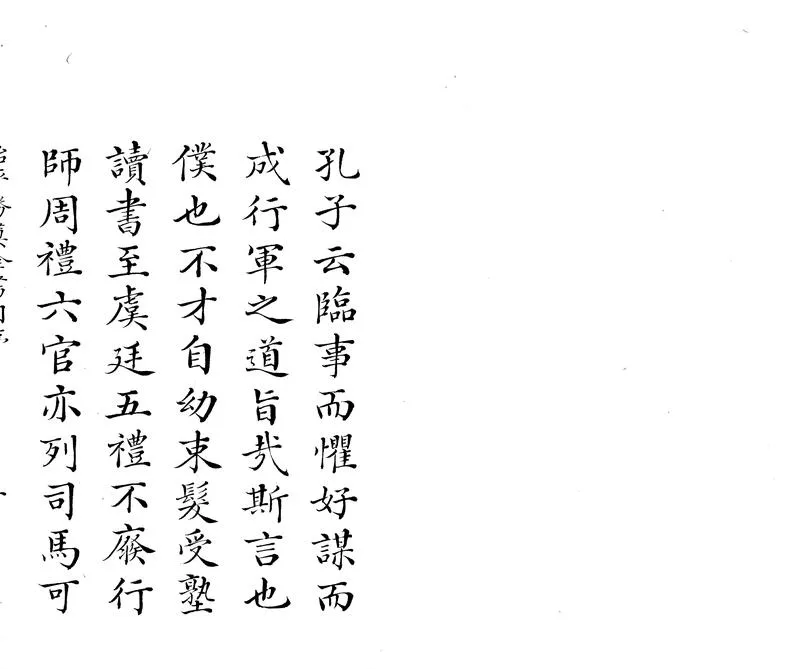 孔子云臨事而懼好謀而
成行軍之道旨哉斯言也
僕也不才自幼束髮受塾
讀書至虞廷五禮不廢行
師周禮六官亦列司馬可